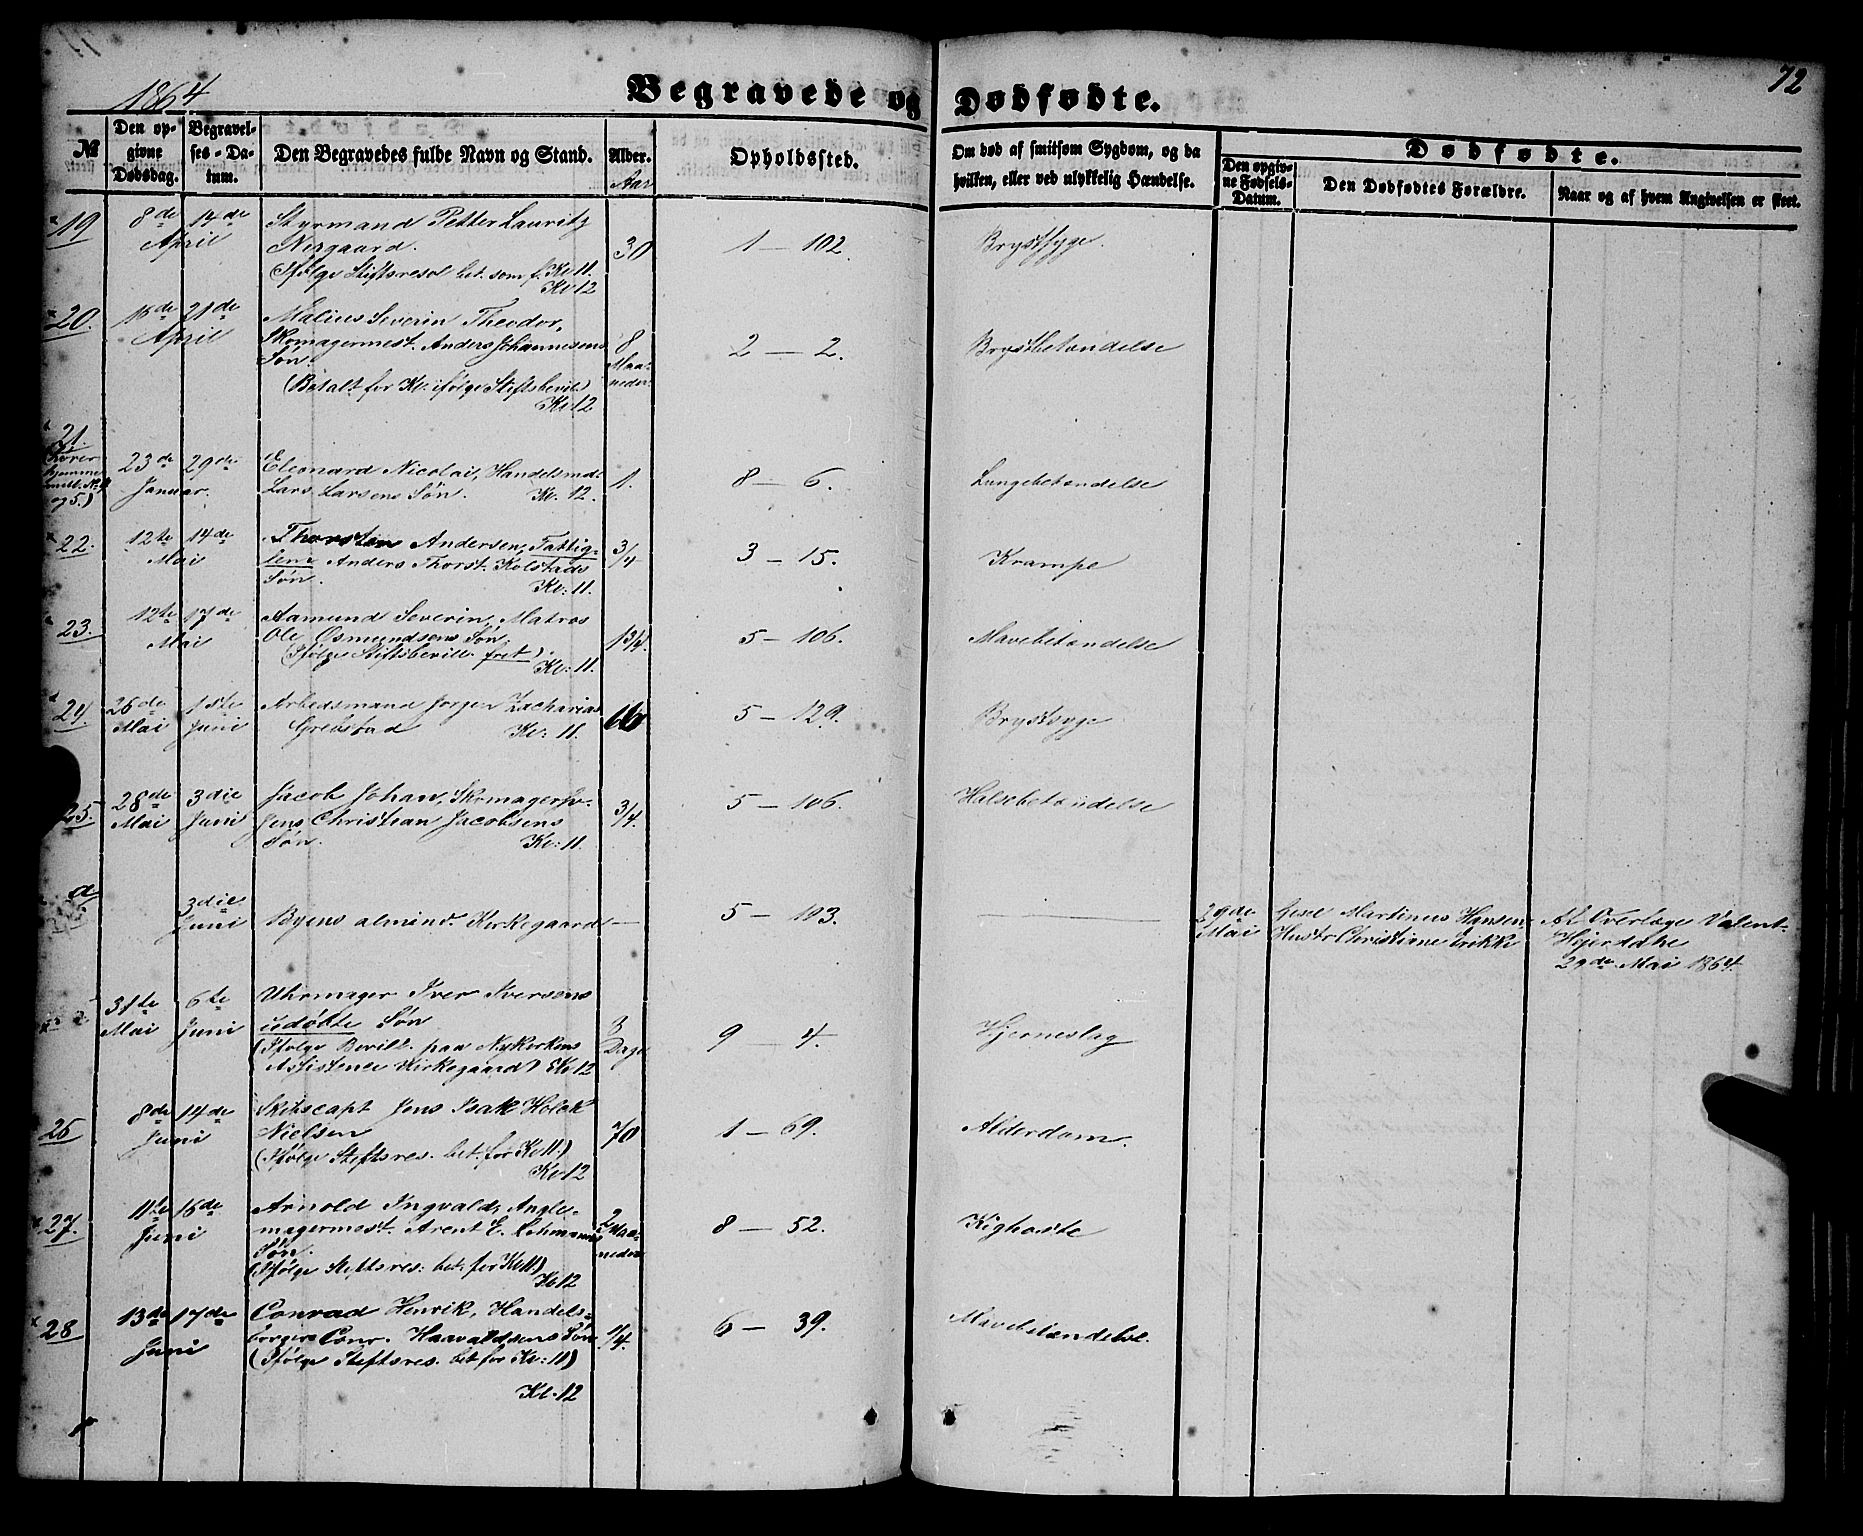 1864
72
Begravede og Dødfødte.
№
Den opgivne Dødsdag.
Begravelses-Datum.
Den Begravedes fulde Navn og Stand.
Alder. Aar
Opholdssted.
Om død af smitsom Sygdom, og da
hvilken, eller ved ulykkelig Hændelse.
Dødfødte.
Den opgivne Fødsels-Datum.
Den Dødfødtes Forældre.
Naar og af hvem Angivelsen er skeet.
19 8de 14de Styrmand Petter Lauritz
April Nergaard. 30 1 - 102. Brystsyge.
(Ifølge Stiftsresol bet. som f. Kl: 11.
Kl: 12
20. 21de Malius Severin Theodor,
April Skomagermest. Anders Johannesens 8 2 - 2. Brystbetændelse
Søn. Maaneder
(Betalt for Kl. ifølge Stiftsbevill.)
Kl: 12
21.
23de 29de Eleonard Nicolai, Handelsmd.
Januar. Lars Larsens Søn. Kl: 12. 1. 8 - 6. Lungebetændelse
og 5.)
22. 12te 14de Thorsten Andersen, Fattig-
Mai lem Anders Thorst. Kolstads 3/4 3 - 15. Krampe
Søn. Kl: 11.
23. 12te 17de Aamund Severin, Matros
Mai Ole Osmundsens Søn. 1 3/4. 5 - 106. Mavebetændelse
(Ifølge Stiftsbevill. frit). Kl: 11.
24. 26de 1ste Arbeidsmand Jørgen Zacharias 66 5 - 129. Brystsyge
Mai Juni Grebstad Kl: 11.
25. 28de 3die Jacob Johan, Skomagersv-
Mai Juni jens Christian Jacobsens 3/4. 5 - 106. Halsebetændelse
Søn. Kl: 11.
d 3die
Juni Byens almind. Kirkegaard - 5 - 103. 29de Mai Martinus Hansen,
Hustr Christiane Af Overlæge Valent.
Hjerdahl
29de Mai 1864.
31te 6te Uhrmager Iver Iversens
Mai Juni udøbte Søn 3 Dage 9 - 4. Hjerneslag
(Ifølge Bevill. paa Nykirkens
Assistence Kirkegaard) Kl: 12
26 8de 14de Skibscapt Jens Isak Holck
Juni Nielsen 70 1 - 69. Alderdom.
(Ifølge Stiftsres. bet. for Kl: 11.)
Kl: 12
27. 11te 16de Arnold Ingvald,
Juni magermest. Arent E. 2 Maaneder 8 - 52. Kighoste
Søn.
(Ifølge Stiftsres: bet: for Kl: 11)
Kl: 12
28 13de 17de Conrad Henrik, Handels-
Juni borgers Conr. Haavaldsens Søn 1/4. 6 - 39. Mavebetændelse.
(Ifølge Stiftsres. bet for Kl: 11)
Kl: 12